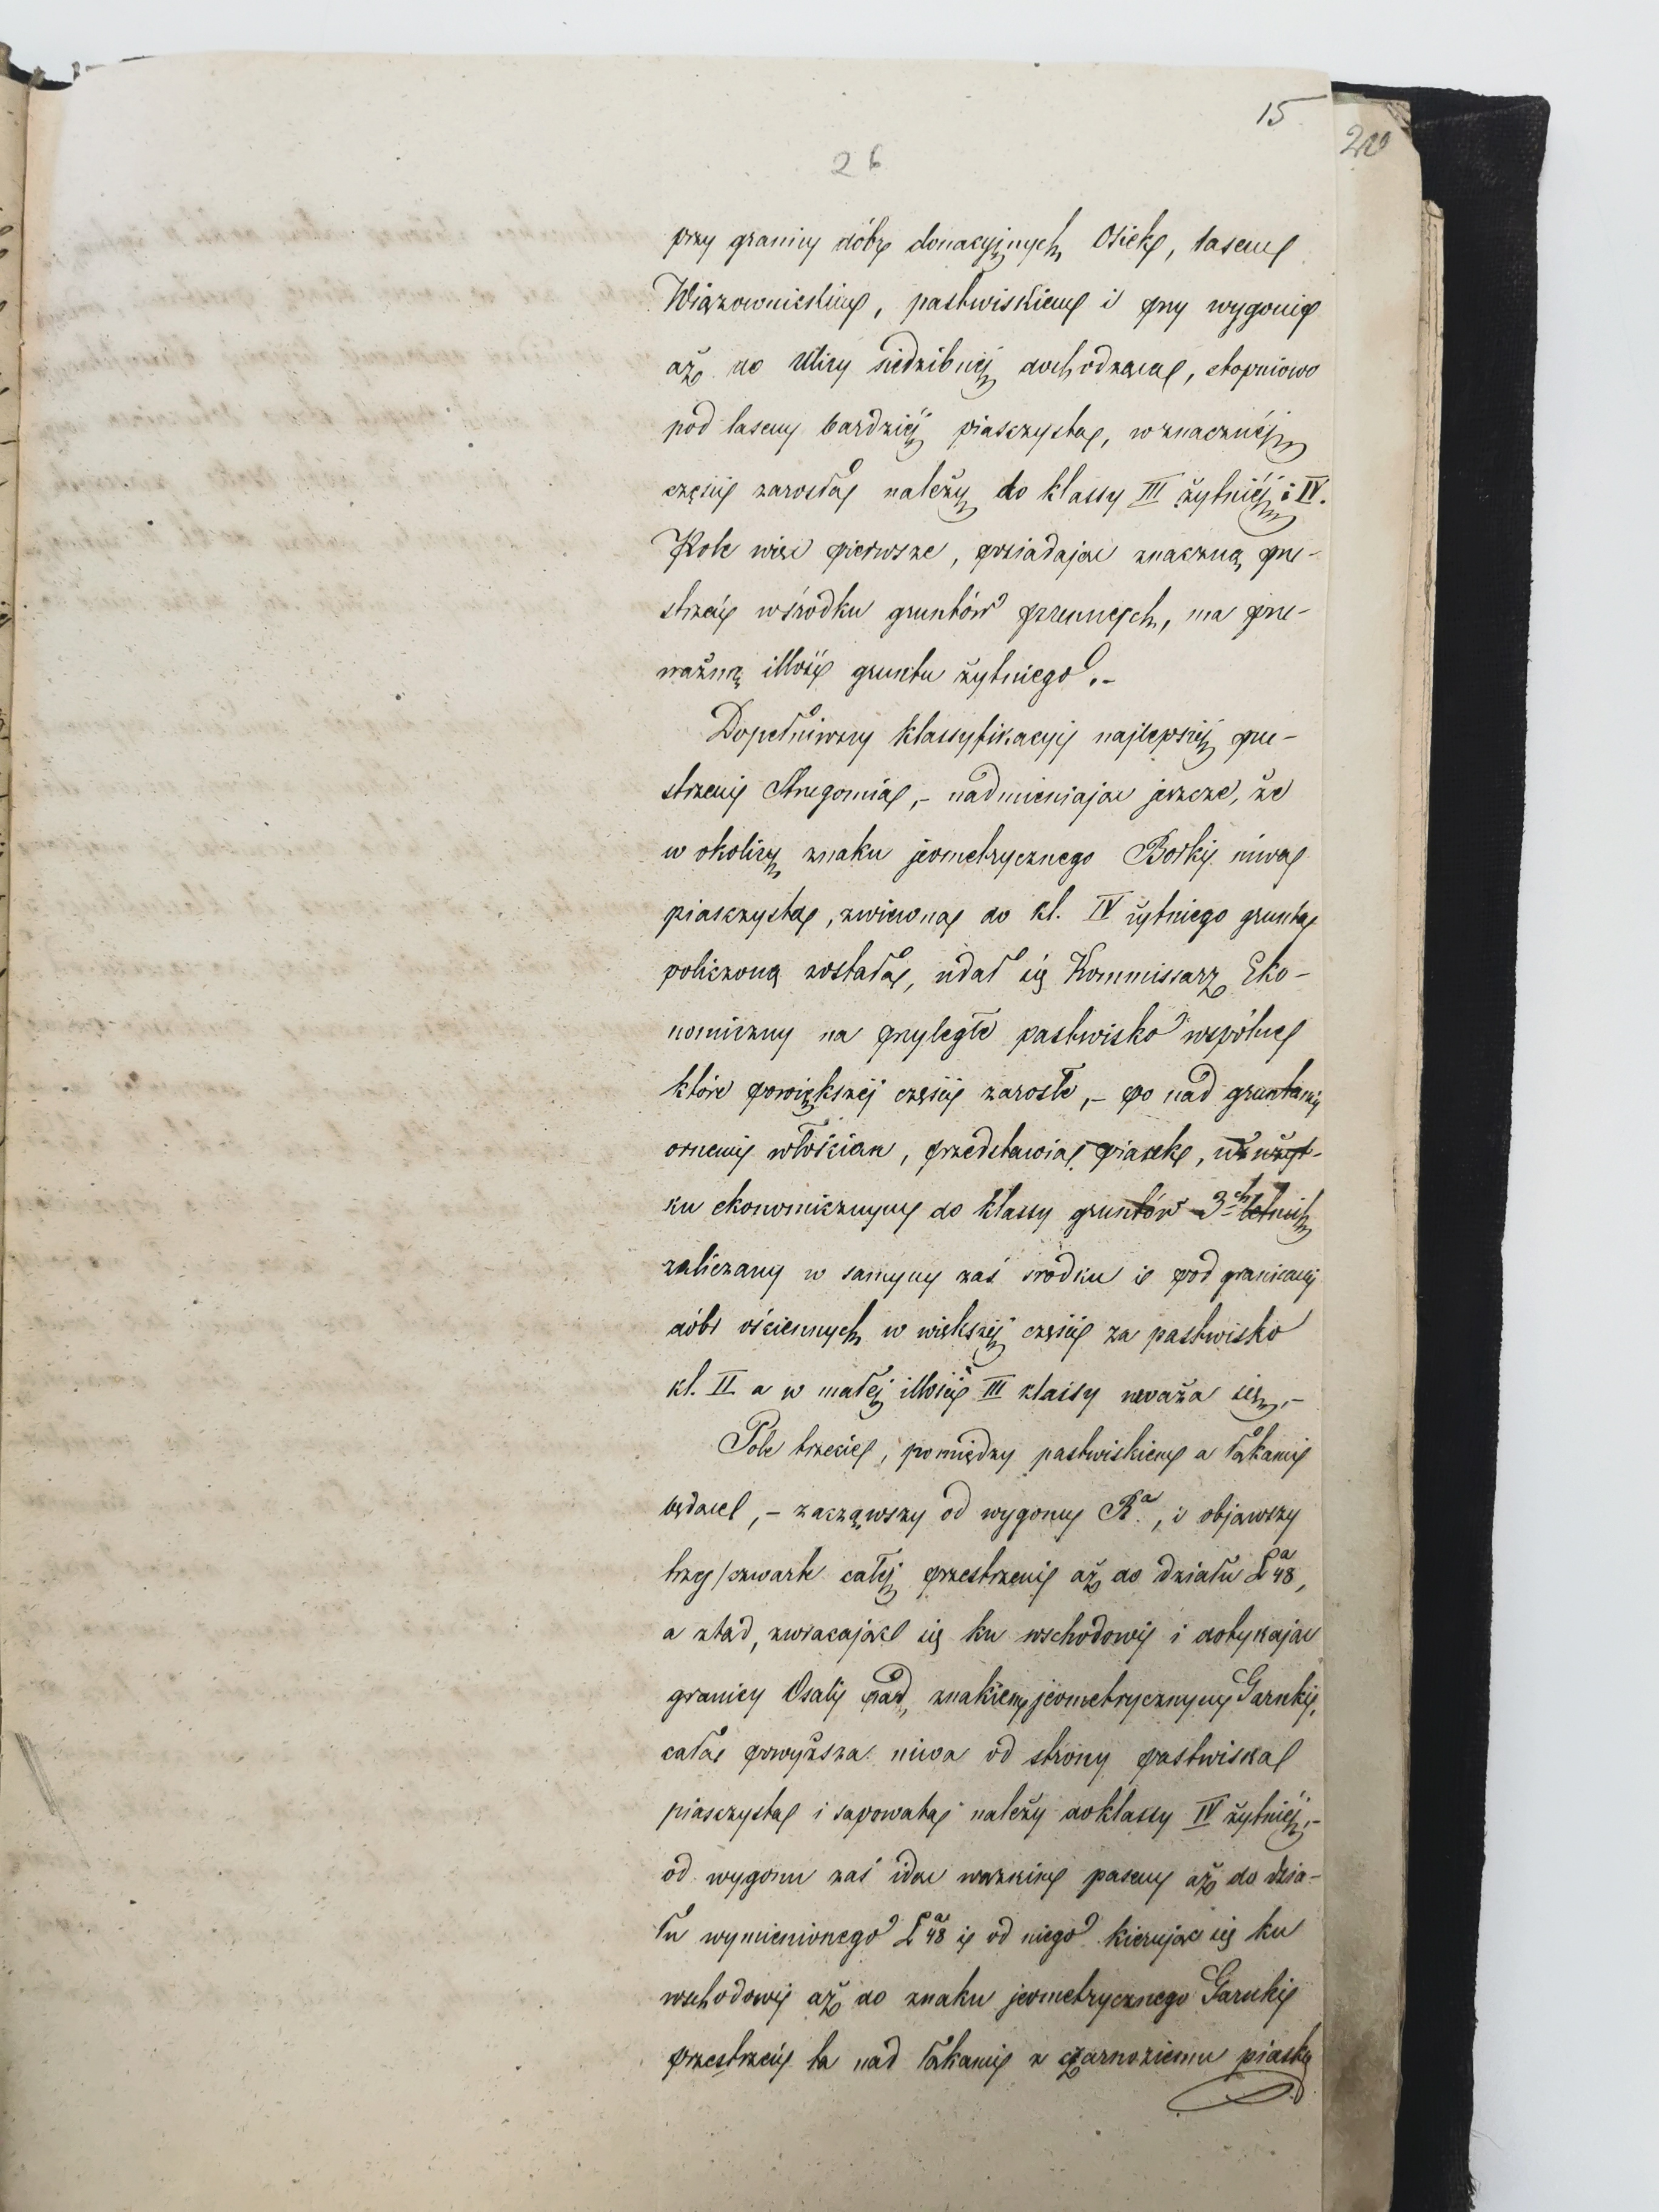 15
26
przy granicy dóbr donacyjnych Osiek, lasem
Wiązownickim, pastwiskiem i przy wygonie
aż do Ulicy siedzibnéj dochodząca, stopniowo
pod lasem bardziéj piasczysta, w znacznéj
części zarosła należy do klassy III żytniéj i IV.
Pole więc pierwsze, posiadając znaczną prze-
strzeń w środku gruntów pszennych, ma prze-
ważną illość gruntu żytniego.-
Dopełniwszy klassyfikacyi najlepszéj prze-
strzeni Strzegomia,- nadmieniając jeszcze, że
w okolicy znaku jeometrycznego Borki niwa
piasczysta, zwiewna do kl. IV żytniego gruntu
policzoną została, udał się Kommissarz Eko-
nomiczny na przyległe pastwisko wspólne
które powiększéj części zarosłe,- po nad gruntami
ornemi włościan, przedstawia piasek, w użyt-
ku ekonomicznym do klassy gruntów 3ch letnich
zaliczany w samym zaś środku i pod granicami
dóbr ościennych w większéj części za pastwisko
kl. II a w małéj illości III klassy uważa się.-
Pole trzecie, pomiędzy pastwiskiem a łąkami
będące,- zacząwszy od wygonu Ra., i objąwszy
trzy/czwarte całéj przestrzeni aż do działu La 48,
a ztąd, zwracając się ku wschodowi i dotykając
granicy Osali nad znakiem jeometrycznym Garnki,
cała powyższa niwa od strony pastwiska
piasczysta i sapowata należy do klassy IV żytniéj,-
od wygonu zaś idąc wązkim pasem aż do dzia-
łu wymienionego La 48 i od niego kierując się ku
wschodowi aż do znaku jeometrycznego Garnki
przestrzeń ta nad łąkami z czarnoziemu piasku